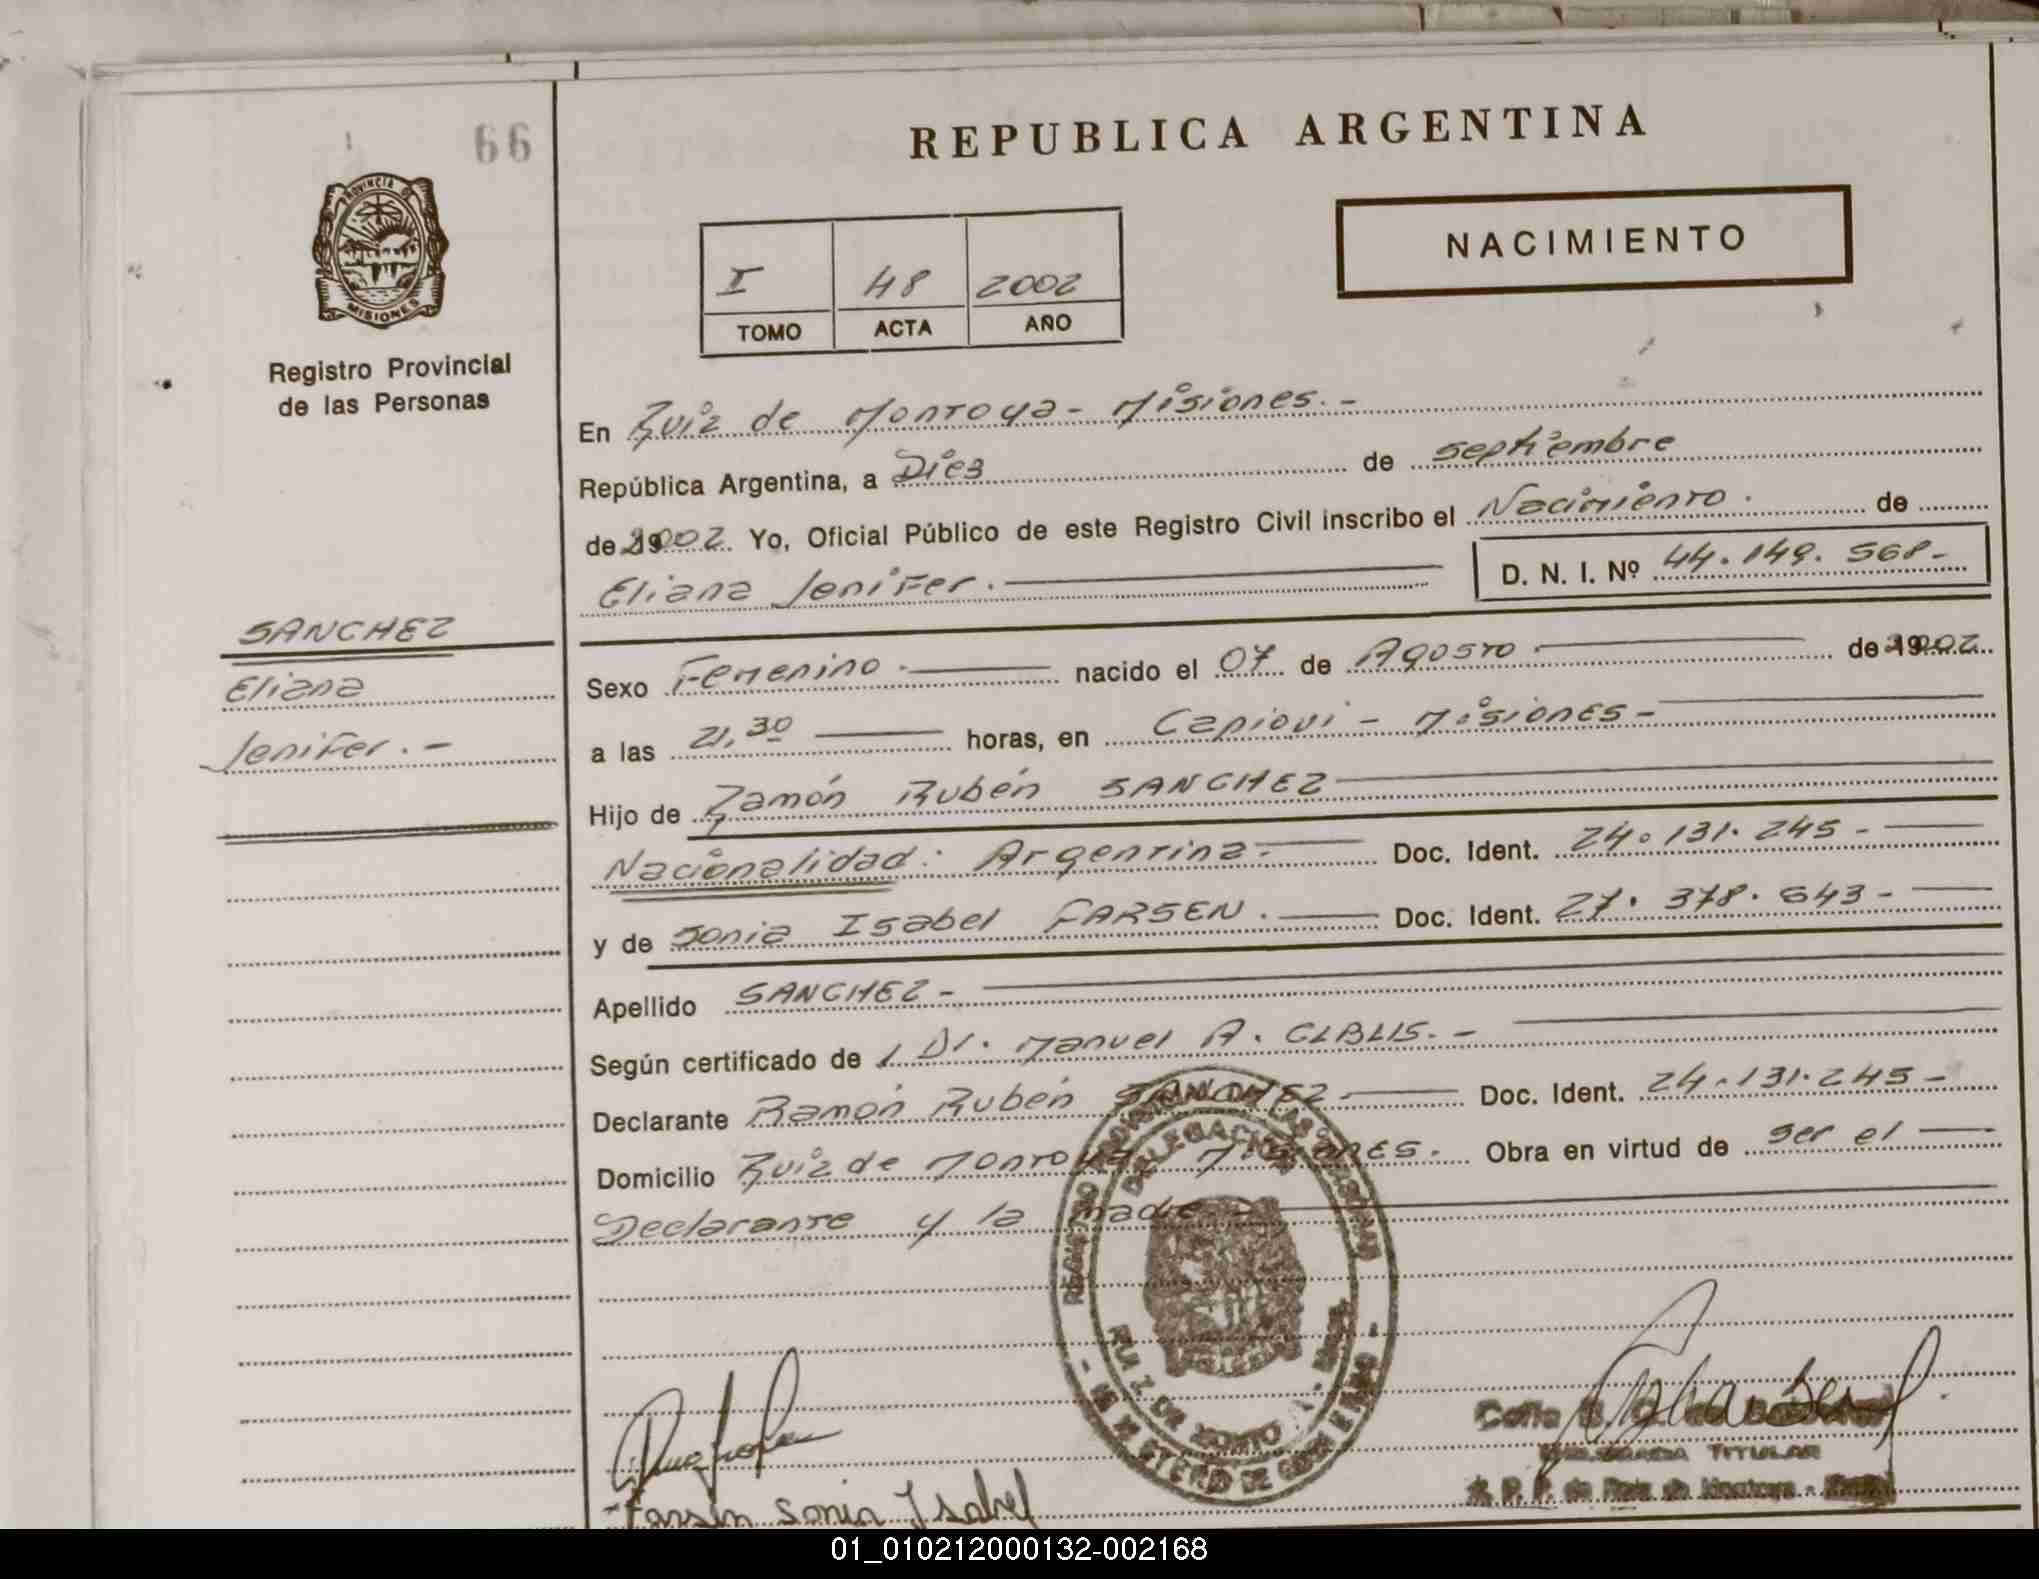 REPUBLICA ARGENTINA
66
PROVINCIA DE
MISIONES
Registro Provincial
de las Personas
NACIMIENTO
I 48 2002
TOMO ACTA AÑO
En Ruiz de Montoya - Misiones.-
República Argentina, a Diez de septiembre
de 2002 Yo, Oficial Público de este Registro Civil inscribo el Nacimiento. de
Eliana Jenifer. D. N. I. Nº 44.149.568-
SANCHEZ
Eliana
Jenifer.-
Sexo Femenino. nacido el 07 de Agosto de 2002
a las 21,30 horas, en Capiovi - Misiones-
Hijo de Ramón Rubén SANCHEZ
Nacionalidad: Argentina.- Doc. Ident. 24.131.245-
y de Sonia Isabel FARSEN. Doc. Ident. 27.378.643-
Apellido SANCHEZ-
Según certificado de Dr. Manuel A.
Declarante Ramón Rubén SANCHEZ Doc. Ident. 24.131.245-
Domicilio Ruiz de Montoya Misiones. Obra en virtud de ser el
Declarante y la madre
REGISTRO PROVINCIAL DE LAS PERSONAS
DELEGACION
RUIZ DE MONTOYA
MINISTERIO DE GOBIERNO
Farsen Sonia Isabel
TITULAR
R. P. P. de Ruiz de Montoya -
01_010212000132-002168